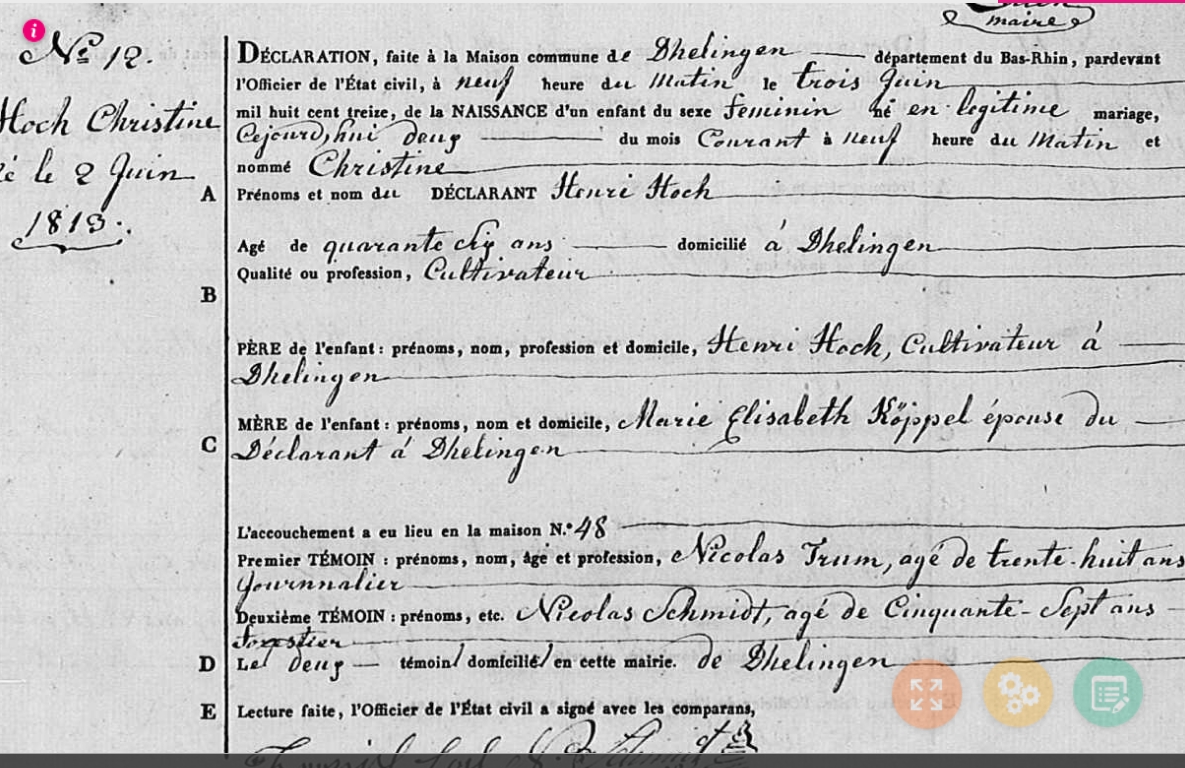 maire
Nº 12.
Hoch Christine
né le 2 Juin
1813.
DÉCLARATION, faite à la Maison commune de Dhelingen département du Bas-Rhin, pardevant
l'Officier de l'État civil, à neuf heure du Matin le trois Juin
mil huit cent treize, de la NAISSANCE d'un enfant du sexe feminin né en legitime mariage,
Cejourd'hui deux du mois Courant à neuf heure du Matin et
nommé Christine
A Prénoms et nom du DÉCLARANT Henri Hoch
Agé de quarante six ans domicilié à Dhelingen
Qualité ou profession, Cultivateur
B
PÈRE de l'enfant : prénoms, nom, profession et domicile, Henri Hoch, Cultivateur à
Dhelingen
MÈRE de l'enfant : prénoms, nom et domicile, Marie Elisabeth Köppel épouse du
C Déclarant à Dhelingen
L'accouchement a eu lieu en la maison N.º 48
Premier TÉMOIN : prénoms, nom, âge et profession, Nicolas Trum, agé de trente-huit ans
Journnalier
Deuxième TÉMOIN : prénoms, etc. Nicolas Schmidt, agé de Cinquante-Sept ans
forestier
D Les deux témoins domiciliés en cette mairie. de Dhelingen
E Lecture faite, l'Officier de l'État civil a signé avec les comparans,